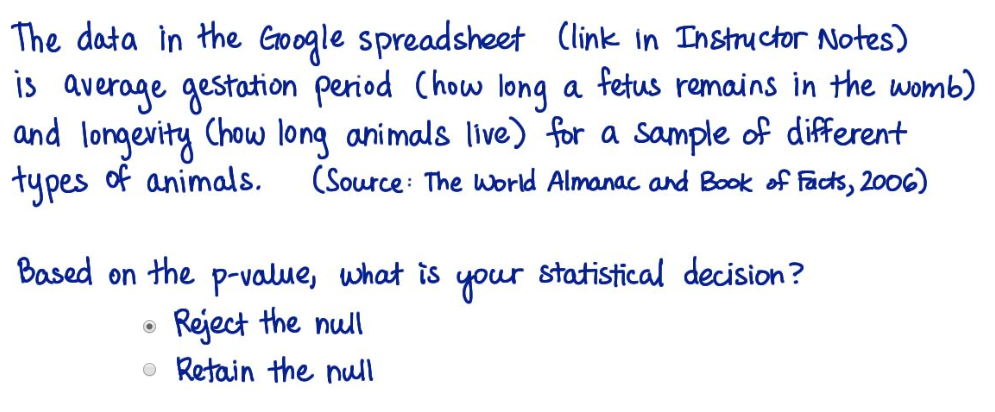 The data in the Google spreadsheet (link in Instructor Notes)
is average gestation period (how long a fetus remains in the womb)
and longevity (how long animals live) for a sample of different
types of animals. (Source: The World Almanac and Book of Facts, 2006)
Based on the p-value, what is your statistical decision?
Reject the null
Retain the null